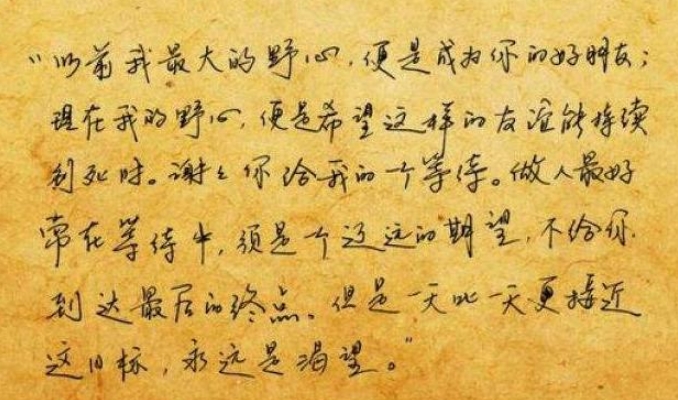 “以前我最大的野心，便是成为你的好朋友；
现在我的野心，便是希望这样的友谊能持续
到死时。谢谢你给我的一个等待。做人最好
常在等待中，须是个辽远的期望，不给你
到达最后的终点。但是一天比一天更接近
这目标，永远是渴望。”